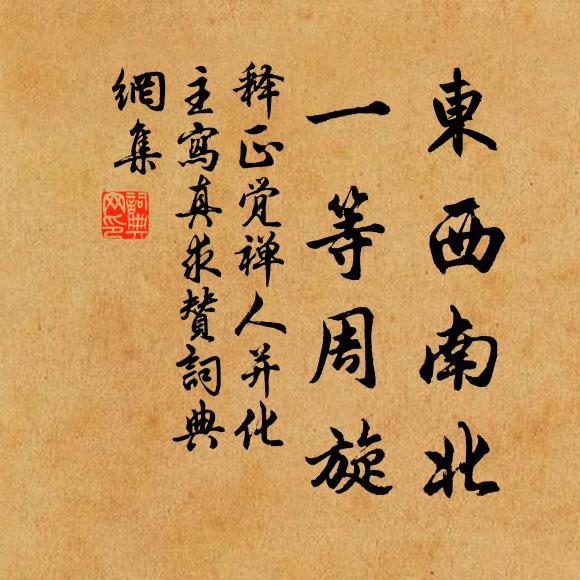 東西南北
一等周旋
释正觉禅人并化
主寫真求贊詞典
網集
詞典
网印